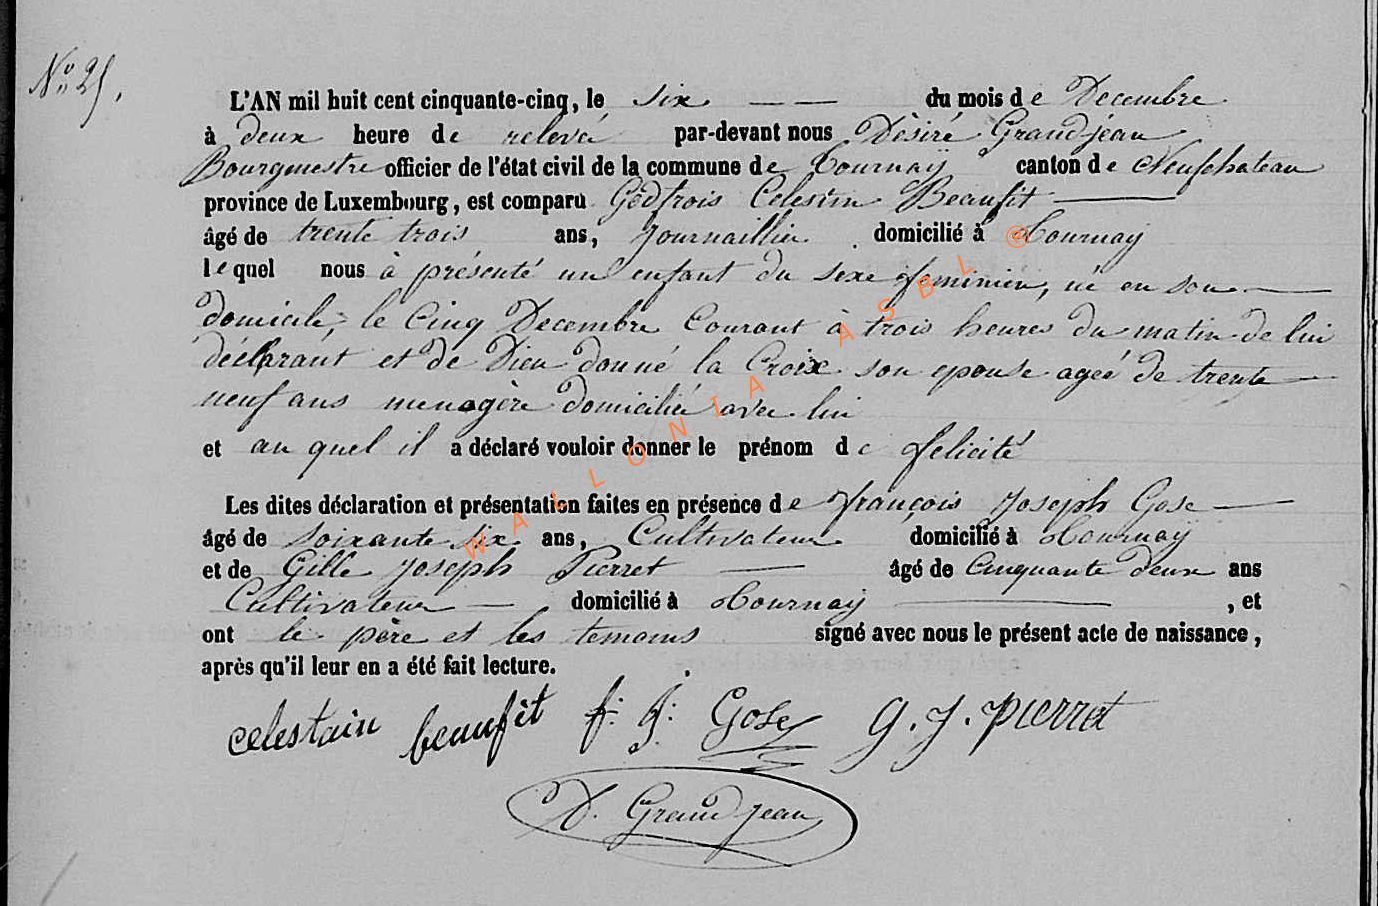 No 25.
L'AN mil huit cent cinquante-cinq, le six — — du mois de Decembre
à deux heure de relevé par-devant nous Dèsiré Grandjean
Bourgmestre officier de l'état civil de la commune de Tournaÿ canton de Neufchateau
province de Luxembourg, est comparu Gòdfrois Celestin Beaufit —
âgé de trente trois ans, Journaillier domicilié à Tournay
lequel nous à présenté un enfant du sexe feminien, né en son —
domicile, le Cinq Decembre Courant à trois heures du matin de lui
déclarant et de Dieu donné la Croix son epouse ageé de trente —
neuf ans menagère domicilié avec lui
et au quel il a déclaré vouloir donner le prénom de felicité
Les dites déclaration et présentation faites en présence de françois Joseph Gose —
âgé de soixante six ans, Cultivateur domicilié à Tournaÿ
et de Gille Joseph Pierret — âgé de Cinquante deux ans
Cultivateur — domicilié à Tournaÿ — , et
ont le père et les temoins signé avec nous le présent acte de naissance,
après qu'il leur en a été fait lecture.
celestain beaufit f: J: Gose G. J. pierret
D. Grandjean
WALLONIA ASBL @